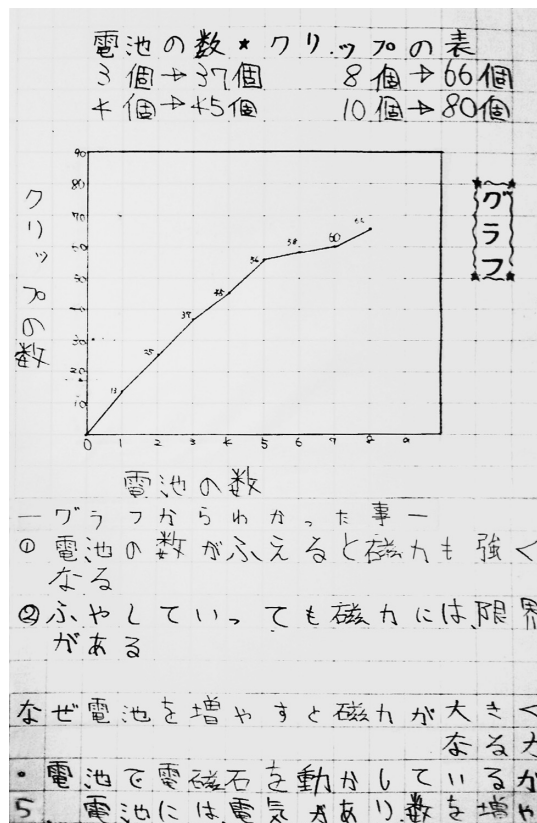 電池の数★クリップの表
3個→37個 8個→66個
4個→45個 10個→80個
グラフ
クリップの数
90
80
70
60
50
13
25
37
45
56
58
60
0 1 2 3 4 5 6 7 8 9
電池の数
ーグラフからわかった事ー
① 電池の数がふえると磁力も強く
なる
②ふやしていっても磁力には、限界
がある
なぜ電池を増やすと磁力が大きく
なるか
・電池で電磁石を動かしているが
5. 電池には、電気があり、数を増や